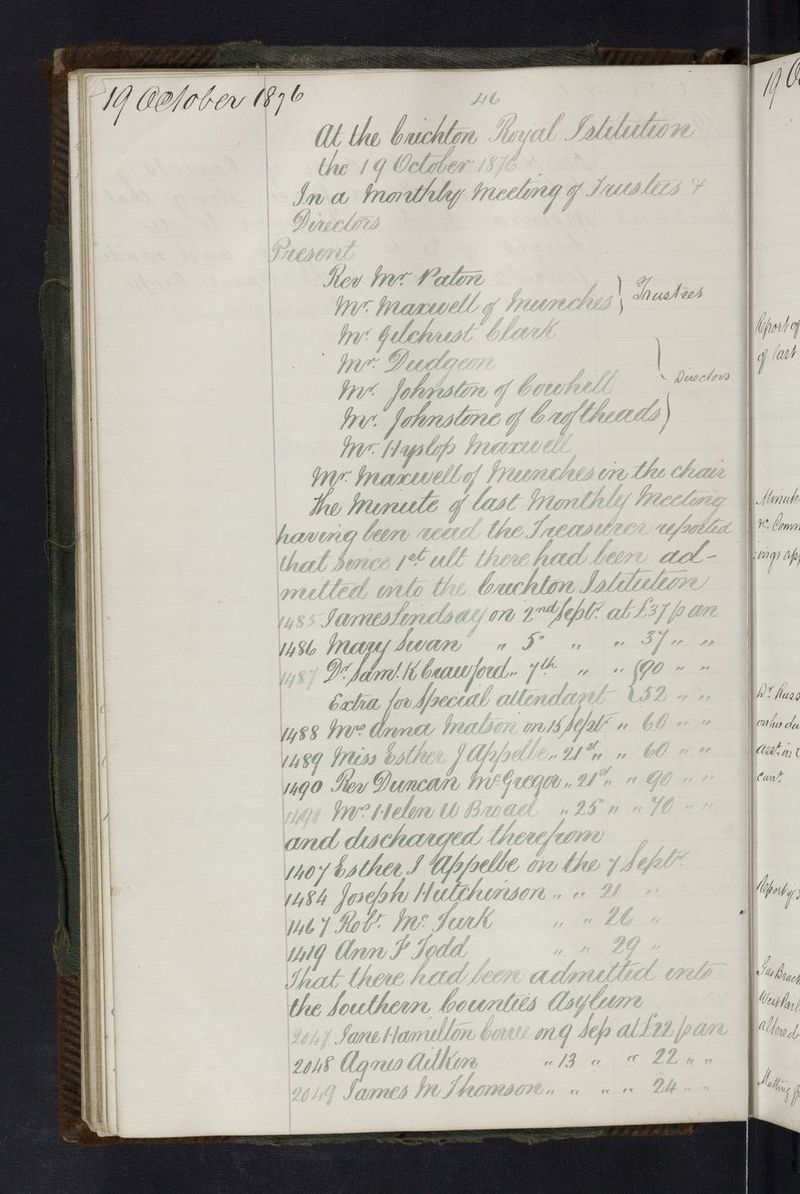 19 October 1876
46
At the Crichton Royal Istitution
the 19 October 1876
In a Monthly Meeting of Trustees &
Directors
Present
Rev Mr. Paton
Mr. Maxwell of Munches } Trustees
Mr. Gilchrist Clark
Mr. Dudgeon
Mr. Johnston of Cowhill } Directors
Mr. Johnstone of Croftheads
Mr. Hyslop Maxwell
Mr. Maxwell of Munches in the chair
The Minute of last Monthly Meeting
having been read the Treasurer reported
that since 1st ult there had been ad-
mitted into the Crichton Istitution
1485 James Lindsay on 2nd Sept. at £37 p an
1486 Mary Swan " 5" " " 37 " "
1487 Dr. Saml. K Crawford " 7th " " {90 " "
Extra for Special attendant {52 " "
1488 Mrs Anna Matson on 15 Sept " 60 " "
1489 Miss Esther J Appelbe " 21st " " 60 " "
1490 Rev Duncan McGregor " 21st " " 90 " "
1491 Mrs Helen W Broad " 25 " " 70 " "
and discharged therefrom
1407 Esther J Appelbe on the 7 Septr.
1484 Joseph Hutchinson " " 21 "
1467 Robt. Mc.Turk " " 26 "
1419 Ann F Todd " " 29 "
That there had been admitted into
the Southern Counties Asylum
2047 Jane Hamilton Corrie on 9 Sep at £22 p an
2048 Agnes Aitken " 13 " " 22 " "
2049 James M Thomson " " " " 24 " "
19 O
Report of
of last
Minute
Dr. Russ
Report of
Gas Brack
West Park
altered
Matting